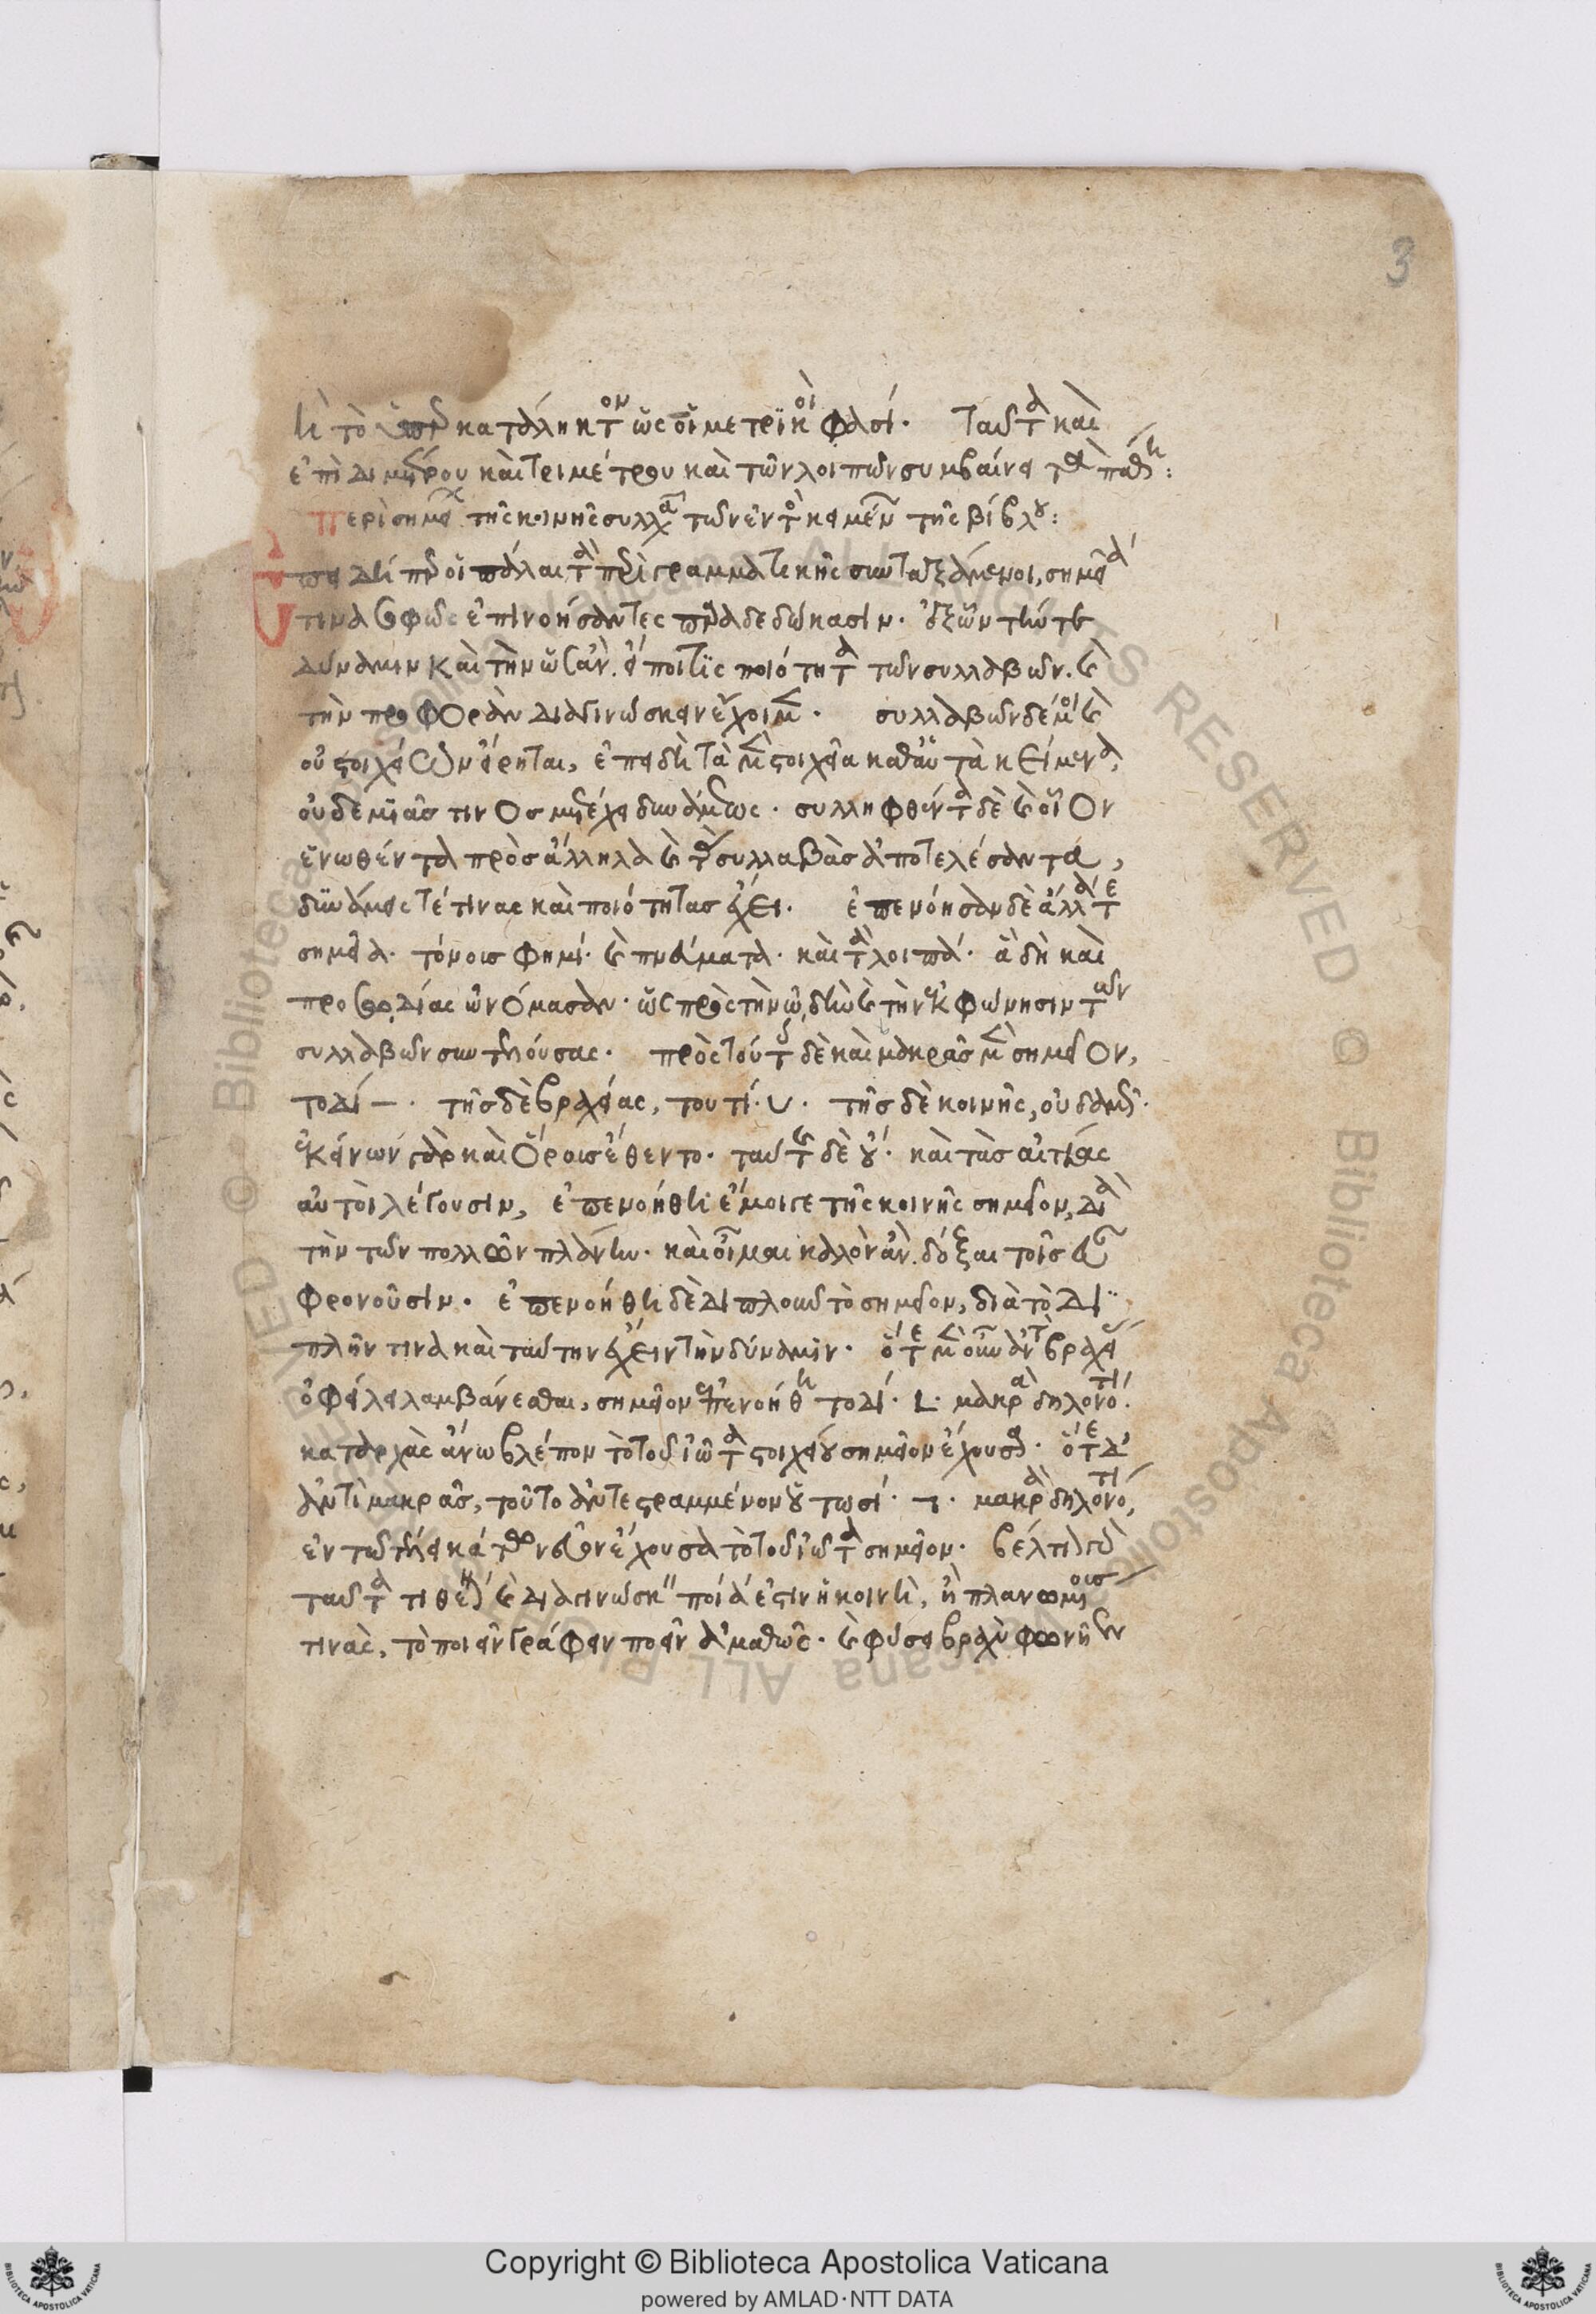 3
ἢ τὸ κατάληκτον ὡς οἱ μετρικοί φασί. ταῦτα καὶ
ἐπὶ διμέτρου καὶ τριμέτρου καὶ τῶν λοιπῶν συμβαίνει τὰ πάθη:
περὶ σημεί τῆς κοινῆς συλλα τῶν ἐν τ κειμέν τῆς βίβλου:
οἱ πάλαι τὰ περὶ γραμματικῆς συνταξάμενοι, σημεῖά
τινα σοφῶς ἐπινοήσαντες παραδεδώκασιν. ἐξ ὧν τήν τε
δύναμιν καὶ τὴν ὡσὰν εἴποι τίς ποιότητα τῶν συλλαβῶν. καὶ
τὴν προφορὰν διαγινώσκειν ἔχοιμεν. συλλαβῶν δέ μοι καὶ
οὐ στοιχείων εἴρηται, ἐπειδὴ τὰ μὲν στοιχεῖα καθ' αὑτὰ κείμενα,
οὐδεμιᾶς τινος μετέχει δυνάμεως. συλληφθέντα δὲ καὶ οἷον
ἑνωθέντα πρὸς ἄλληλα καὶ τὰς συλλαβὰς ἀποτελέσαντα,
δυνάμεις τέ τινας καὶ ποιότητας ἔχει. ἐπενόησαν δὲ ἄλλα τε
σημεῖα. τόνοις φημί. καὶ πνεύματα. καὶ τὰ λοιπά. ἃ δὴ καὶ
προσῳδίας ὠνόμασαν. ὡς πρὸς τὴν ᾠδὴν καὶ τὴν ἐκφώνησιν τῶν
συλλαβῶν συντελούσας. πρὸς τούτοις δὲ καὶ μακρᾶς μὲν σημεῖον,
τοδί –. τῆς δὲ βραχείας, τουτί. ∪. τῆς δὲ κοινῆς, οὐδαμῶς.
ἐκείνων γὰρ καὶ ὅροις ἔθεντο. ταύτ δὲ οὔ. καὶ τὰς αἰτίας
αὐτοὶ λέγουσιν, ἐπενοήθη ἔμοιγε τῆς κοινῆς σημεῖον, διὰ
τὴν τῶν πολλῶν πλάνην. καὶ οἶμαι καλὸν ἂν δόξαι τοῖς εὖ
φρονοῦσιν. ἐπενοήθη δὲ διπλοῦν τὸ σημεῖον, διὰ τὸ δι
πλῆν τινα καὶ ταύτην ἔχειν τὴν δύναμιν. ὅτε μὲν οὖν ἀντὶ βραχεί
ὀφείλει λαμβάνεσθαι, σημεῖον ἐπενοήθη τοδί. L. μακρὰ δηλονότι
κατ' ἀρχὰς ἄνω βλέπον τὸ τοῦ ἰῶτα στοιχείου σημεῖον ἔχουσα. ὅτε δ'
ἀντὶ μακρᾶς, τοῦτο ἀντεγραμμένον οὑτωσί. ¬. μακρὰ δηλονότι,
ἐν τῷ τέλει κάτω νεῦον ἔχουσα τὸ τοῦ ἰῶτα σημεῖον. βέλτιον
ταῦτα τιθέναι καὶ διαγινώσκειν ποία ἐστὶν ἡ κοινὴ, ἢ πλανωμένοις
τινὰς, τὸ ποιεῖν γράφειν ποεῖν ἀμαθῶς. καὶ φύσει βραχὺ φωνῆεν
Copyright © Biblioteca Apostolica Vaticana
powered by AMLAD·NTT DATA